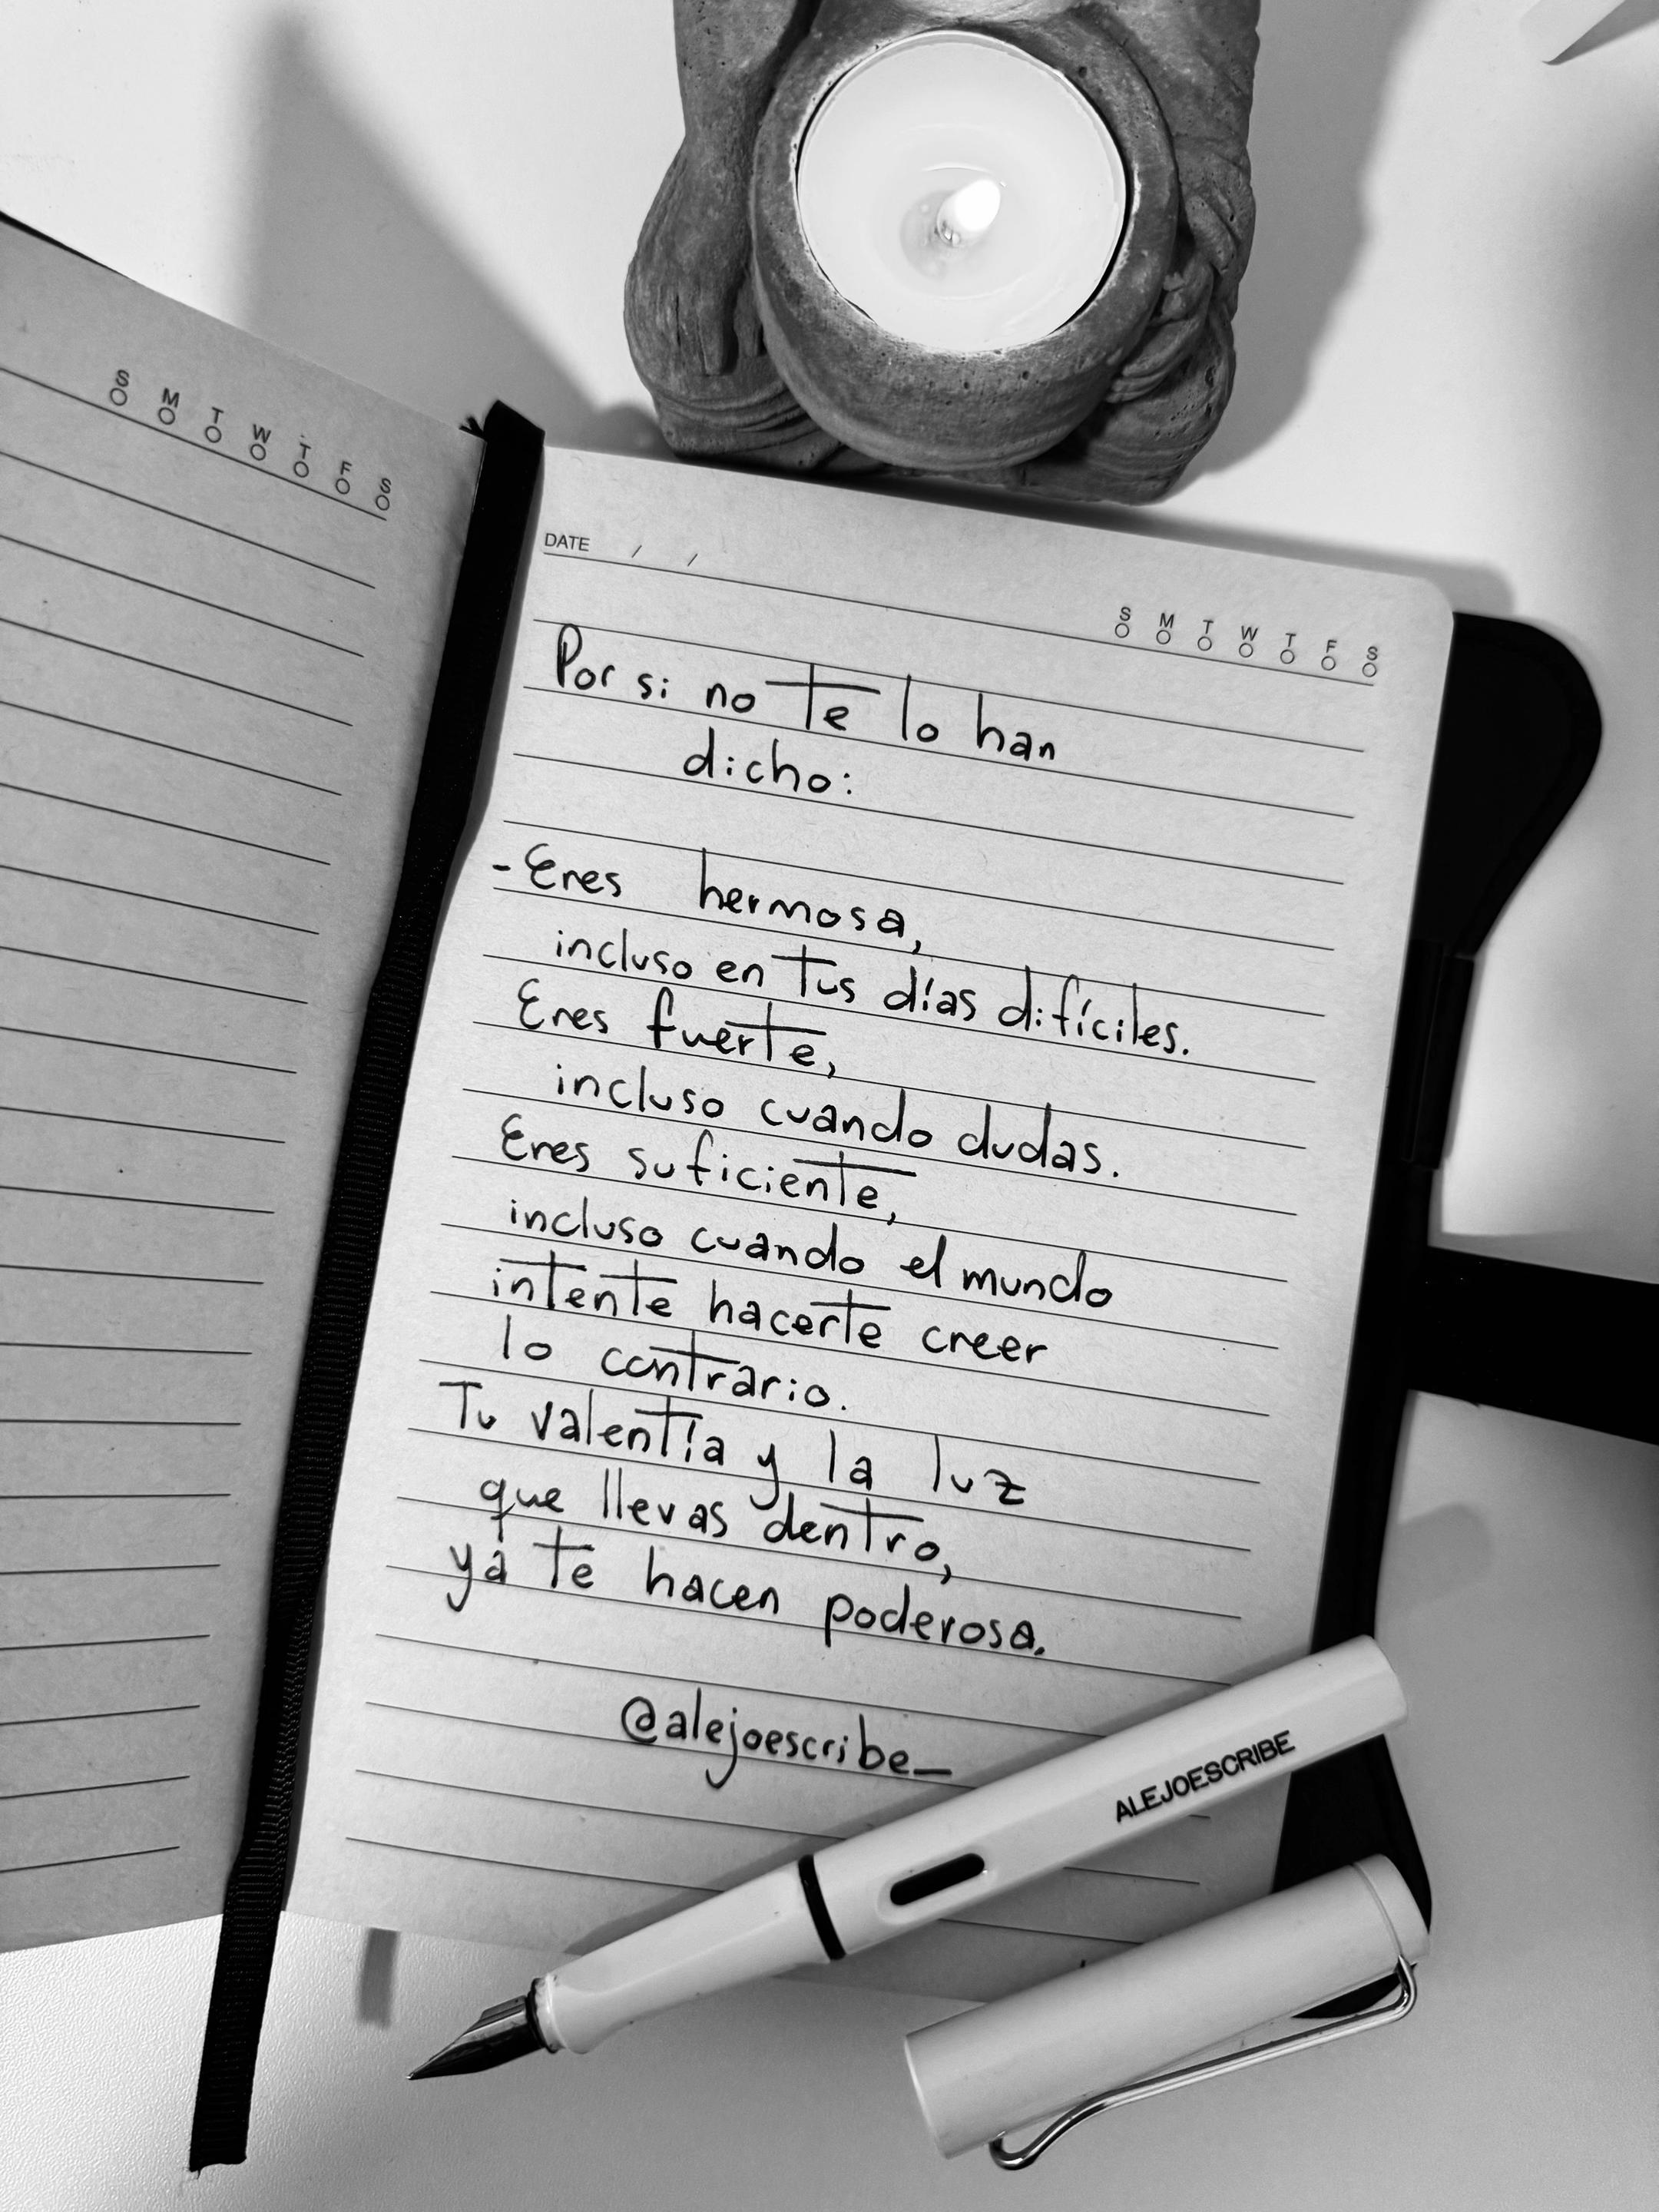 S M T W T F S
DATE / /
S M T W T F S
Por si no te lo han
dicho:
- Eres hermosa,
incluso en tus días difíciles.
Eres fuerte,
incluso cuando dudas.
Eres suficiente,
incluso cuando el mundo
intente hacerte creer
lo contrario.
Tu valentía y la luz
que llevas dentro,
ya te hacen poderosa.
@alejoescribe_
ALEJOESCRIBE